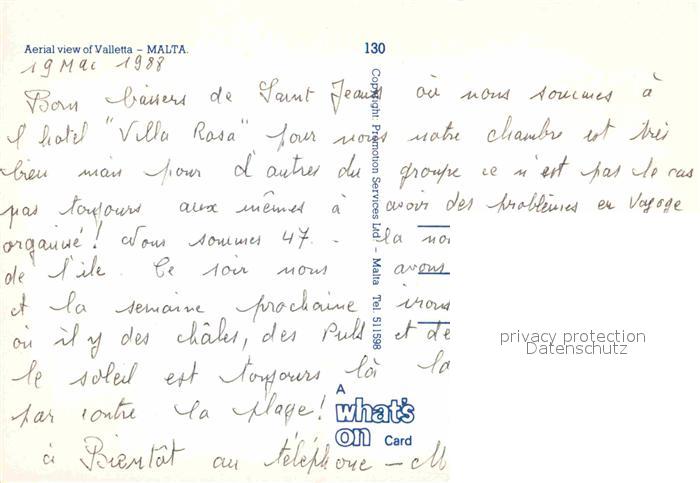 Aerial view of Valletta – MALTA.
130
19 Mai 1988
Bons baisers de Saint Jeans où nous sommes à
l'hotel "Villa Rosa" pour nous notre chambre est très
bien mais pour d'autres du groupe ce n'est pas le cas
pas toujours aux mêmes à avoir des problèmes en voyage
organisé! Nous sommes 47. - la
de l'ile. Ce soir nous avons
et la semaine prochaine irons
où il y des châles, des Pulls et de
le soleil est toujours là la
par contre la plage!
à Bientôt au téléphone - M
Copyright: Promotion Services Ltd. – Malta Tel. 511598
A
what's
on Card
privacy protection
Datenschutz